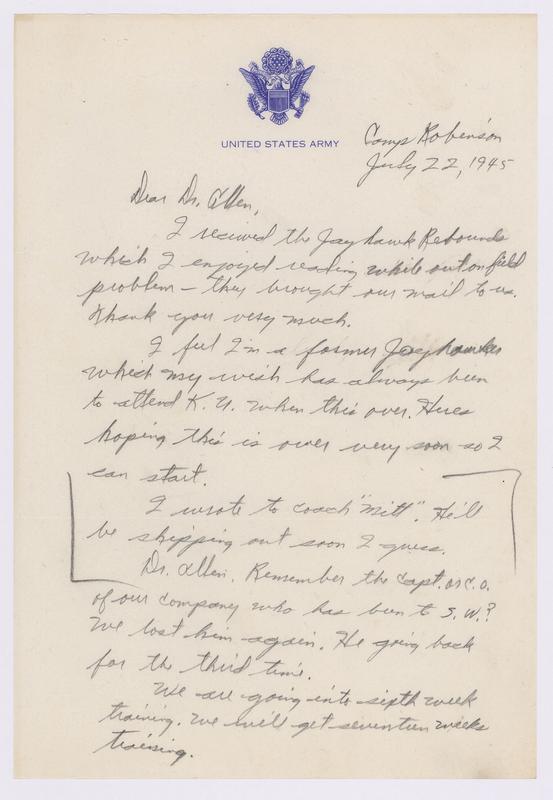 UNITED STATES ARMY
Camp Robinson
July 22, 1945
Dear Dr. Allen,
I received the Jayhawk Rebounds
which I enjoyed reading while out on field
problem – they brought our mail to us.
Thank you very much.
I feel I'm a former Jayhawker
which my wish has always been
to attend K.U. when this over. Heres
hoping this is over very soon so I
can start.
I wrote to coach "Mitt". He'll
be shipping out soon I guess.
Dr. Allen. Remember the capt. or c.o.
of our company who has been to S.W.?
We lost him again. He going back
for the third time.
We are going into sixth week
training. We will get seventeen weeks
training.